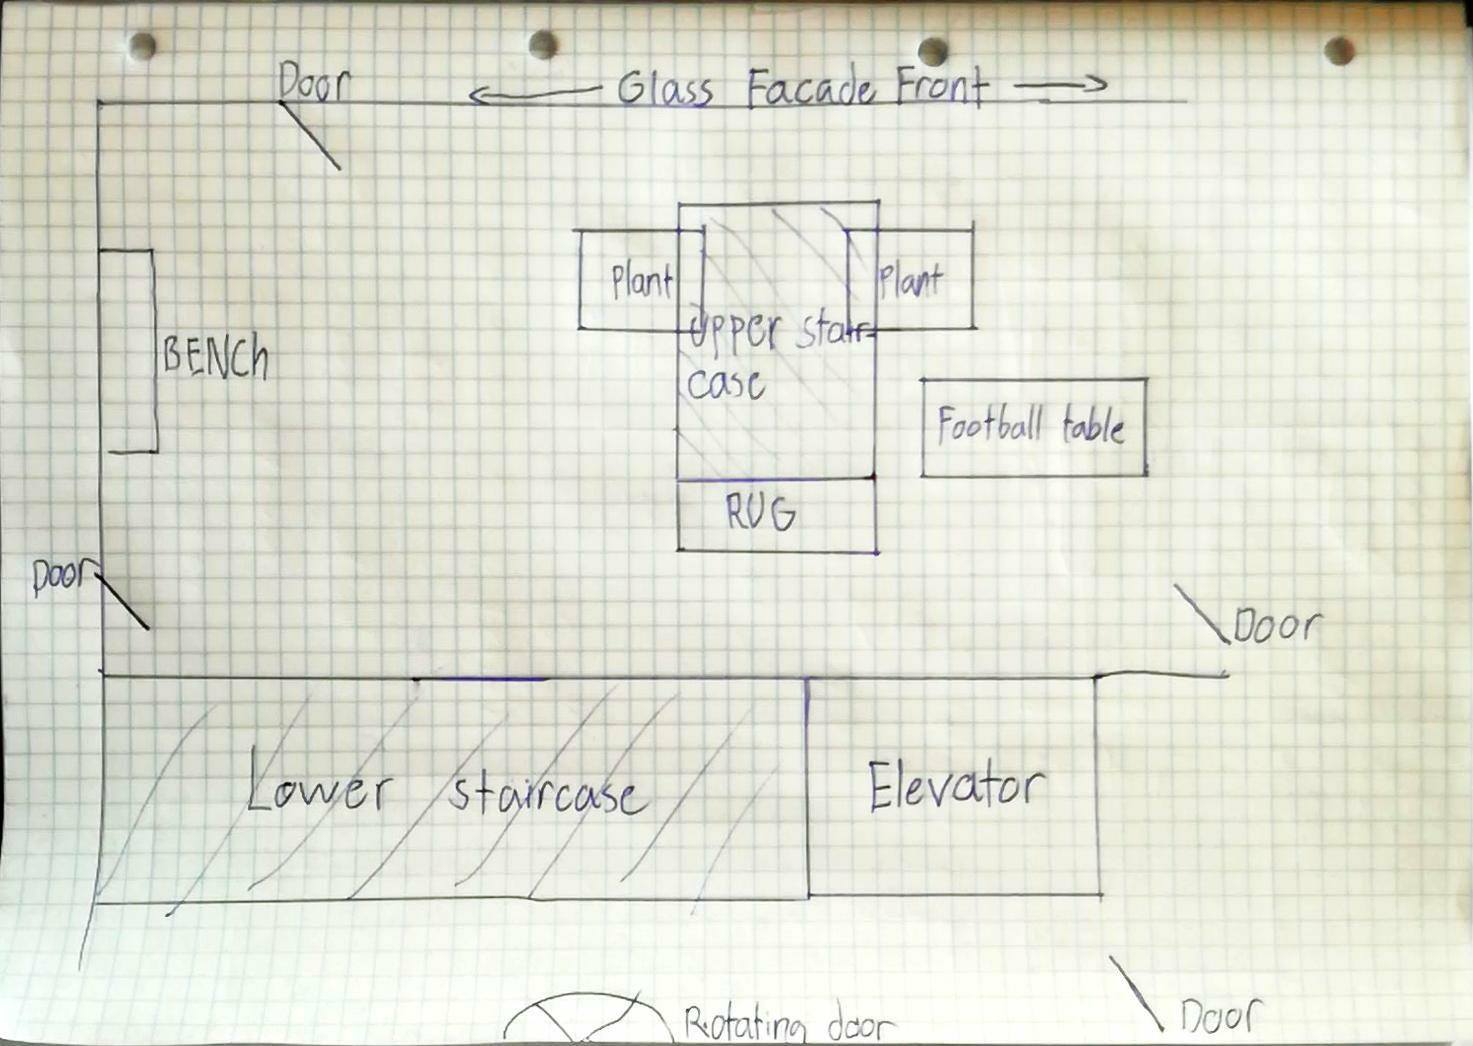 Door
Glass Facade Front
Plant
Plant
Upper stair-
case
BENCh
Football table
RUG
Door
Door
Lower staircase
Elevator
Rotating door
Door